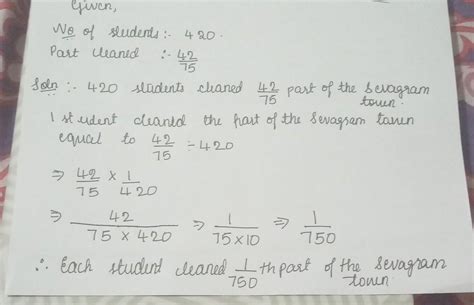 Given,
No of students :- 420.
Part cleaned :- 42/75
Soln :- 420 students cleaned 42/75 part of the Sevagram town.
1 student cleaned the part of the Sevagram town
equal to 42/75 ÷ 420
⇒ 42/75 × 1/420
⇒ 42/(75 × 420) ⇒ 1/(75×10) ⇒ 1/750
∴ Each student cleaned 1/750 th part of the Sevagram town.